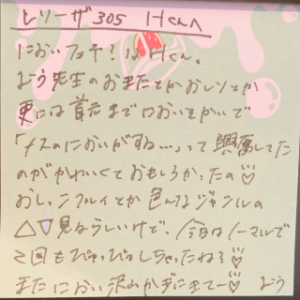 とリーザ305 Hくんへ
においフェチ?なHくん。
よう先生のおまたとかおしりとか
更には首元までにおいをかいで
「メスのにおいがする…」って興奮してた
のがかわいくておもしろかったの♡
おしっこプレイとか色んなジャンルの
△▽見るらしいけど、今日はノーマルで
2回もぴゅっぴゅしちゃったね♡
またにおい沢山かぎにきてー♡ よう